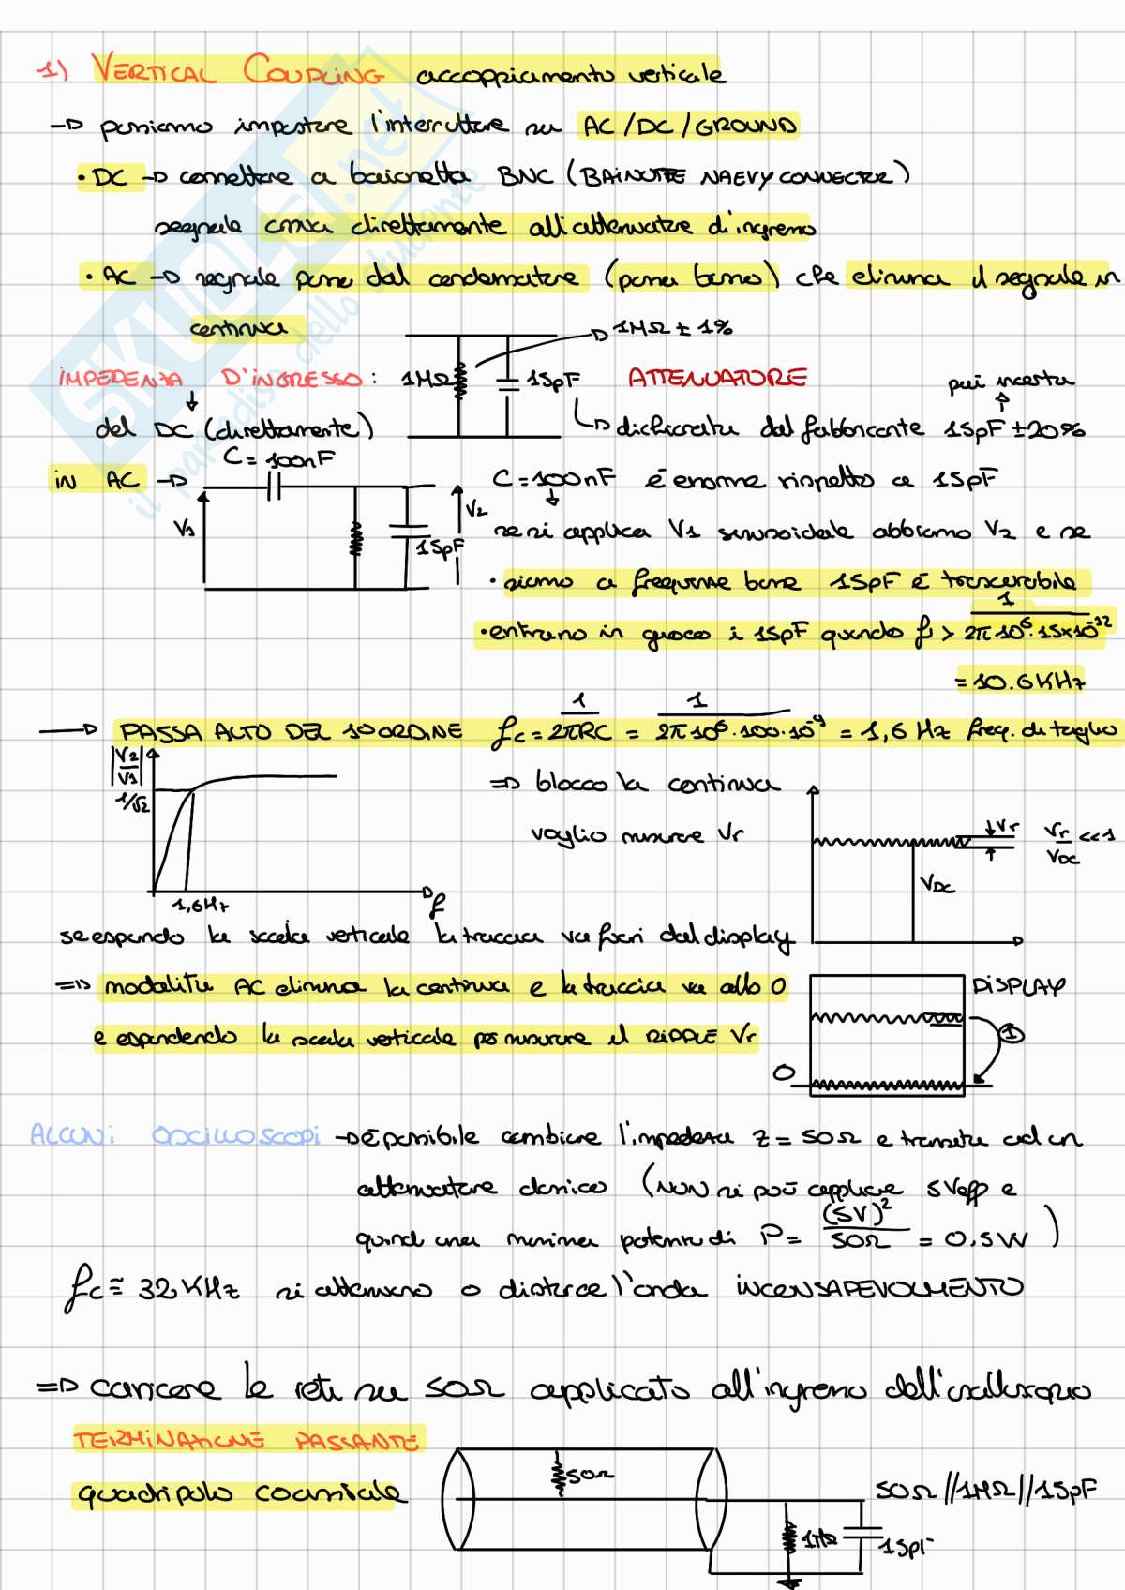 1) VERTICAL COUPLING accoppiamento verticale
→ possiamo impostare l'interruttore su AC/DC/GROUND
• DC → connettore a baionetta BNC (BAINOTTE NAEVY CONNECTOR)
segnale arriva direttamente all'attenuatore d'ingresso
• AC → segnale passa dal condensatore (passa basso) che elimina il segnale in
continua
1MΩ ± 1%
IMPEDENZA D'INGRESSO: 1MΩ 15pF ATTENUATORE può incerta
del DC (direttamente) dichiarata dal fabbricante 15pF ±20%
C = 100nF
in AC → C = 100nF è enorme rispetto a 15pF
V1 V2 15pF se si applica V1 sinusoidale abbiamo V2 e se
• siamo a frequenze basse 15pF è trascurabile
• entrano in gioco i 15pF quando f > 1 / 2π 10⁶ · 15×10⁻¹²
= 10.6 KHz
→ PASSA ALTO DEL 1° ORDINE fc = 1 / 2πRC = 1 / 2π 10⁶ · 100 · 10⁻⁹ = 1,6 Hz freq. di taglio
|V2/V1|
1/√2
⇒ blocco la continua
voglio misurare Vr
Vr Vr/VDC <<1
VDC
1,6Hz f
se espando la scala verticale la traccia va fuori dal display
⇒ modalità AC elimina la continua e la traccia va allo 0
DISPLAY
e espandendo la scala verticale per misurare il RIPPLE Vr
1
0
Alcuni oscilloscopi → è possibile cambiare l'impedenza z = 50Ω e transita ad un
attenuatore (NON si può applicare 5Veff e
quindi una massima potenza di P = (5V)² / 50Ω = 0.5W)
fc ≅ 32 KHz si attenuano o distorce l'onda INCONSAPEVOLMENTO
⇒ caricare le reti su 50Ω applicato all'ingresso dell'oscilloscopio
TERMINATIONE PASSANTE
quadripolo coassiale 50Ω 50Ω//1MΩ//15pF
1MΩ 15pF